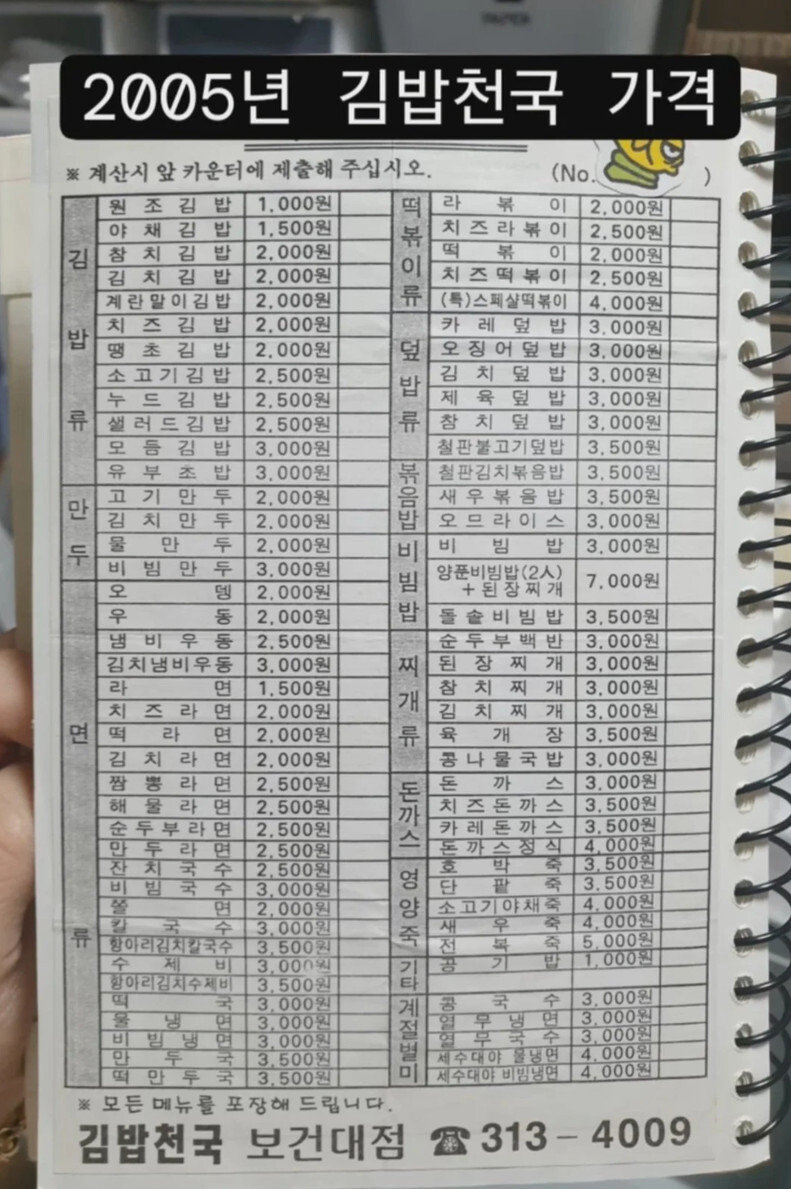 2005년 김밥천국 가격
※ 계산시 앞 카운터에 제출해 주십시오. (No. )
김밥류
원조김밥 1,000원
야채김밥 1,500원
참치김밥 2,000원
김치김밥 2,000원
계란말이김밥 2,000원
치즈김밥 2,000원
땡초김밥 2,000원
소고기김밥 2,500원
누드김밥 2,500원
샐러드김밥 2,500원
모듬김밥 3,000원
유부초밥 3,000원
만두
고기만두 2,000원
김치만두 2,000원
물만두 2,000원
비빔만두 3,000원
면류
오뎅 2,000원
우동 2,000원
냄비우동 2,500원
김치냄비우동 3,000원
라면 1,500원
치즈라면 2,000원
떡라면 2,000원
김치라면 2,000원
짬뽕라면 2,500원
해물라면 2,500원
순두부라면 2,500원
만두라면 2,500원
잔치국수 2,500원
비빔국수 3,000원
쫄면 2,000원
칼국수 3,000원
항아리김치칼국수 3,500원
수제비 3,000원
항아리김치수제비 3,500원
떡국 3,000원
물냉면 3,000원
비빔냉면 3,000원
만두국 3,500원
떡만두국 3,500원
떡볶이류
라볶이 2,000원
치즈라볶이 2,500원
떡볶이 2,000원
치즈떡볶이 2,500원
(특)스페샬떡볶이 4,000원
덮밥류
카레덮밥 3,000원
오징어덮밥 3,000원
김치덮밥 3,000원
제육덮밥 3,000원
참치덮밥 3,000원
철판불고기덮밥 3,500원
볶음밥
철판김치볶음밥 3,500원
새우볶음밥 3,500원
오므라이스 3,000원
비빔밥
비빔밥 3,000원
양푼비빔밥(2人)
+된장찌개 7,000원
돌솥비빔밥 3,500원
찌개류
순두부백반 3,000원
된장찌개 3,000원
참치찌개 3,000원
김치찌개 3,000원
육개장 3,500원
콩나물국밥 3,000원
돈까스
돈까스 3,000원
치즈돈까스 3,500원
카레돈까스 3,500원
돈까스정식 4,000원
영양죽
호박죽 3,500원
단팥죽 3,500원
소고기야채죽 4,000원
새우죽 4,000원
전복죽 5,000원
기타
공기밥 1,000원
계절별미
콩국수 3,000원
열무냉면 3,000원
열무국수 3,000원
세수대야 물냉면 4,000원
세수대야 비빔냉면 4,000원
※ 모든 메뉴를 포장해 드립니다.
김밥천국 보건대점 ☎ 313-4009